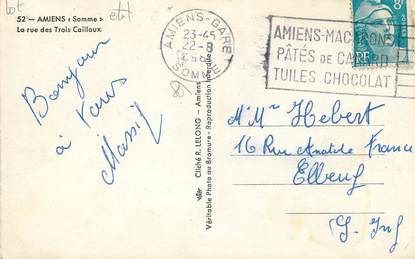 lot
52 – AMIENS « Somme »
La rue des Trois Cailloux
Bonjour
à tous
Cliché R. LELONG - Amiens
Véritable Photo au Bromure - Reproduction interdite
AMIENS-GARE
23-45
22-8
SOMME
AMIENS-MACARONS
PÂTÉS DE CANARD
TUILES CHOCOLAT
M. Mme Hebert
16 Rue Anatole France
Elbeuf